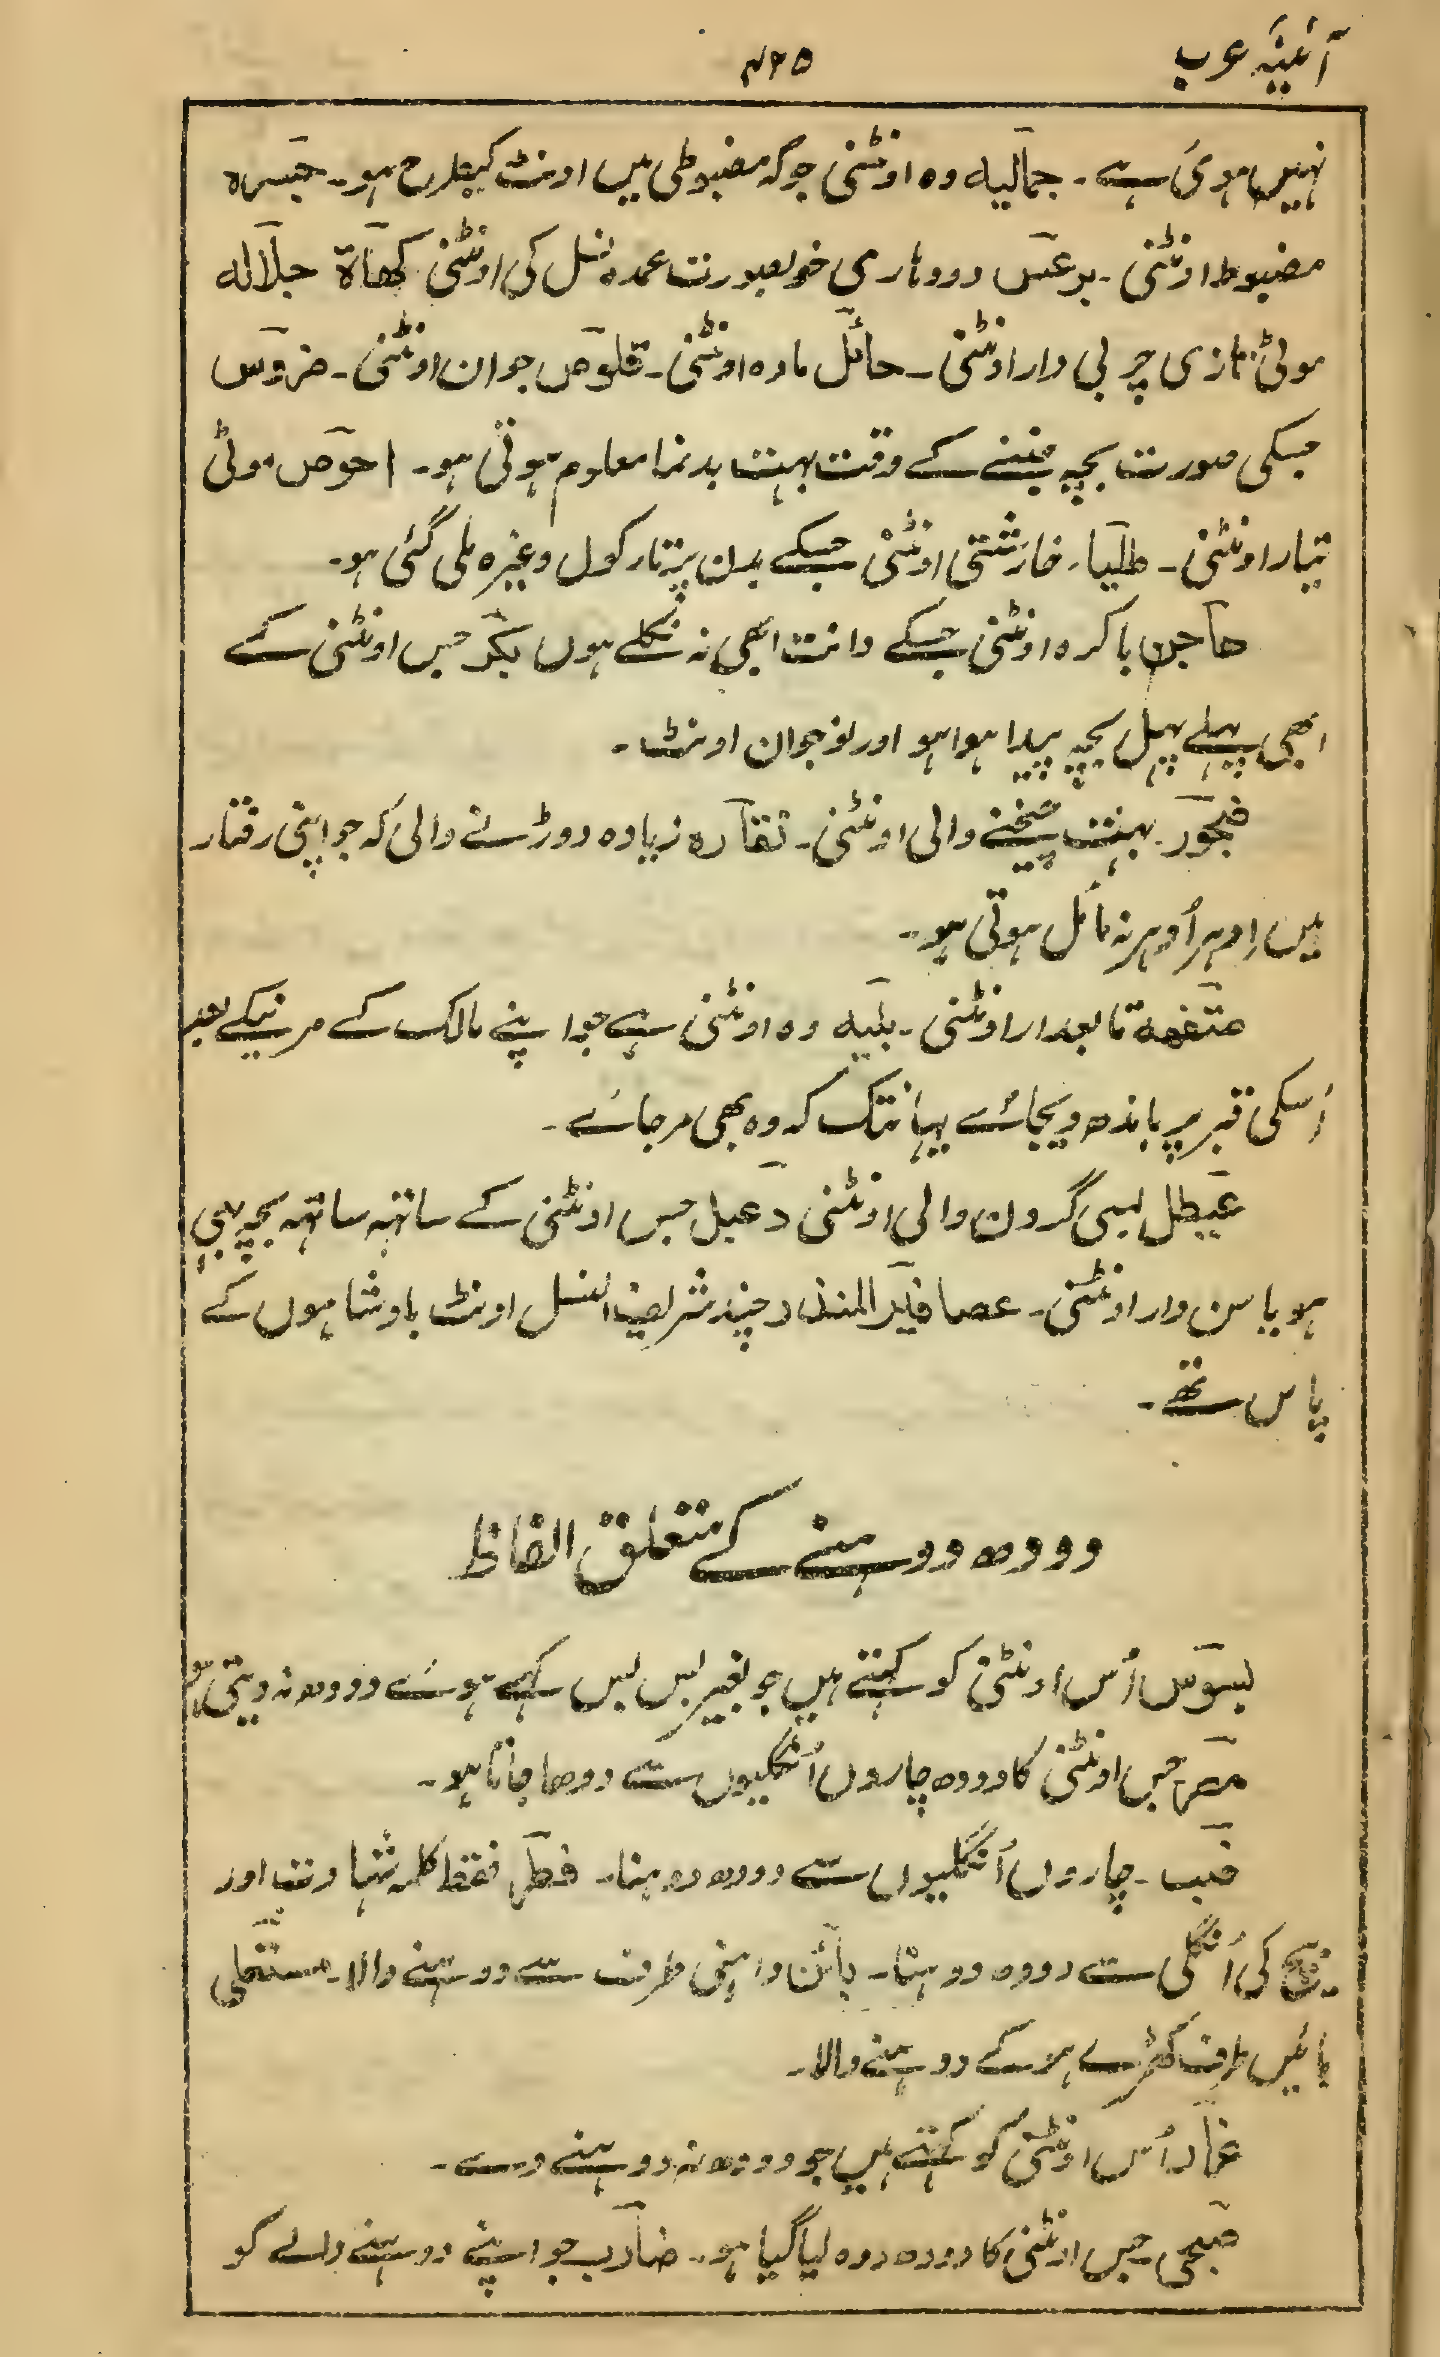 آئینۂ عرب
۴۶۵
نہیں ہوئی ہے۔ جمالیہ وہ اونٹنی جو کہ مضبوطی میں اونٹ کیطرح ہو۔ جسرہ
مضبوط اونٹنی۔ برعس دودہاری خوبصورت عمدہ نسل کی اونٹنی کھاۃ جلالہ
موٹی تازی چربی دار اونٹنی۔ حائل مادہ اونٹنی۔ قلوص جوان اونٹنی۔ ضروس
جسکی صورت بچہ جننے کے وقت بہت بدنما معلوم ہوتی ہو۔ احوص موٹی
تیار اونٹنی۔ طلیا۔ خارشتی اونٹنی جسکے بدن پر تارکول وغیرہ ملی گئی ہو۔
حاجن باکرہ اونٹنی جسکے دانت ابھی نہ نکلے ہوں بکر جس اونٹنی کے
ابھی پہلے پہل بچہ پیدا ہوا ہو اور نوجوان اونٹ۔
ضجور۔ بہت چیخنے والی اونٹنی۔ زیادہ دوڑنے والی کہ جو اپنی رفتار
میں اِدہر اُدہر نہ مائل ہوتی ہو۔
تابعدار اونٹنی۔ بلیہ وہ اونٹنی ہے جو اپنے مالک کے مرنیکے بعد
اُسکی قبر پر باندھ دیجائے یہانتک کہ وہ بھی مرجائے۔
عیطل لمبی گردن والی اونٹنی دعبل جس اونٹنی کے ساتھ ساتھ بچہ بھی
ہو یا سن دار اونٹنی۔ عصافیر المنذر چند شریف النسل اونٹ بادشاہوں کے
پاس تھے۔
دودھ دوہنے کے متعلق الفاظ
بسوس اُس اونٹنی کو کہتے ہیں جو بغیر بس بس کہے ہوئے دودھ نہ دیتی ہو
جس اونٹنی کا دودھ چاروں اُنگلیوں سے دوھا جاتا ہو۔
ضب۔ چاروں اُنگلیوں سے دودھ دوہنا۔ فطر فقط کلمہ شہادت اور
بیچ کی اُنگلی سے دودہ دوہنا۔ بائن داہنی طرف سے دوہنے والا۔ مستعلی
بائیں طرف کھڑے ہو کے دوہنے والا۔
اُس اونٹنی کو کہتے ہیں جو دودھ نہ دوہنے دے۔
جس اونٹنی کا دودھ دوہ لیا گیا ہو۔ ضارب جو اپنے دوہنے والے کو